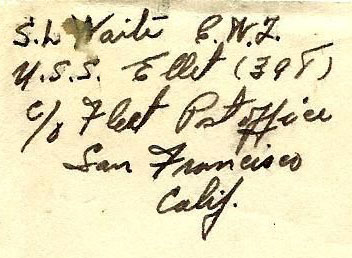 S. L Waite C.W.T.
U.S.S. Ellet (398)
c/o Fleet Post office
San Francisco
Calif.